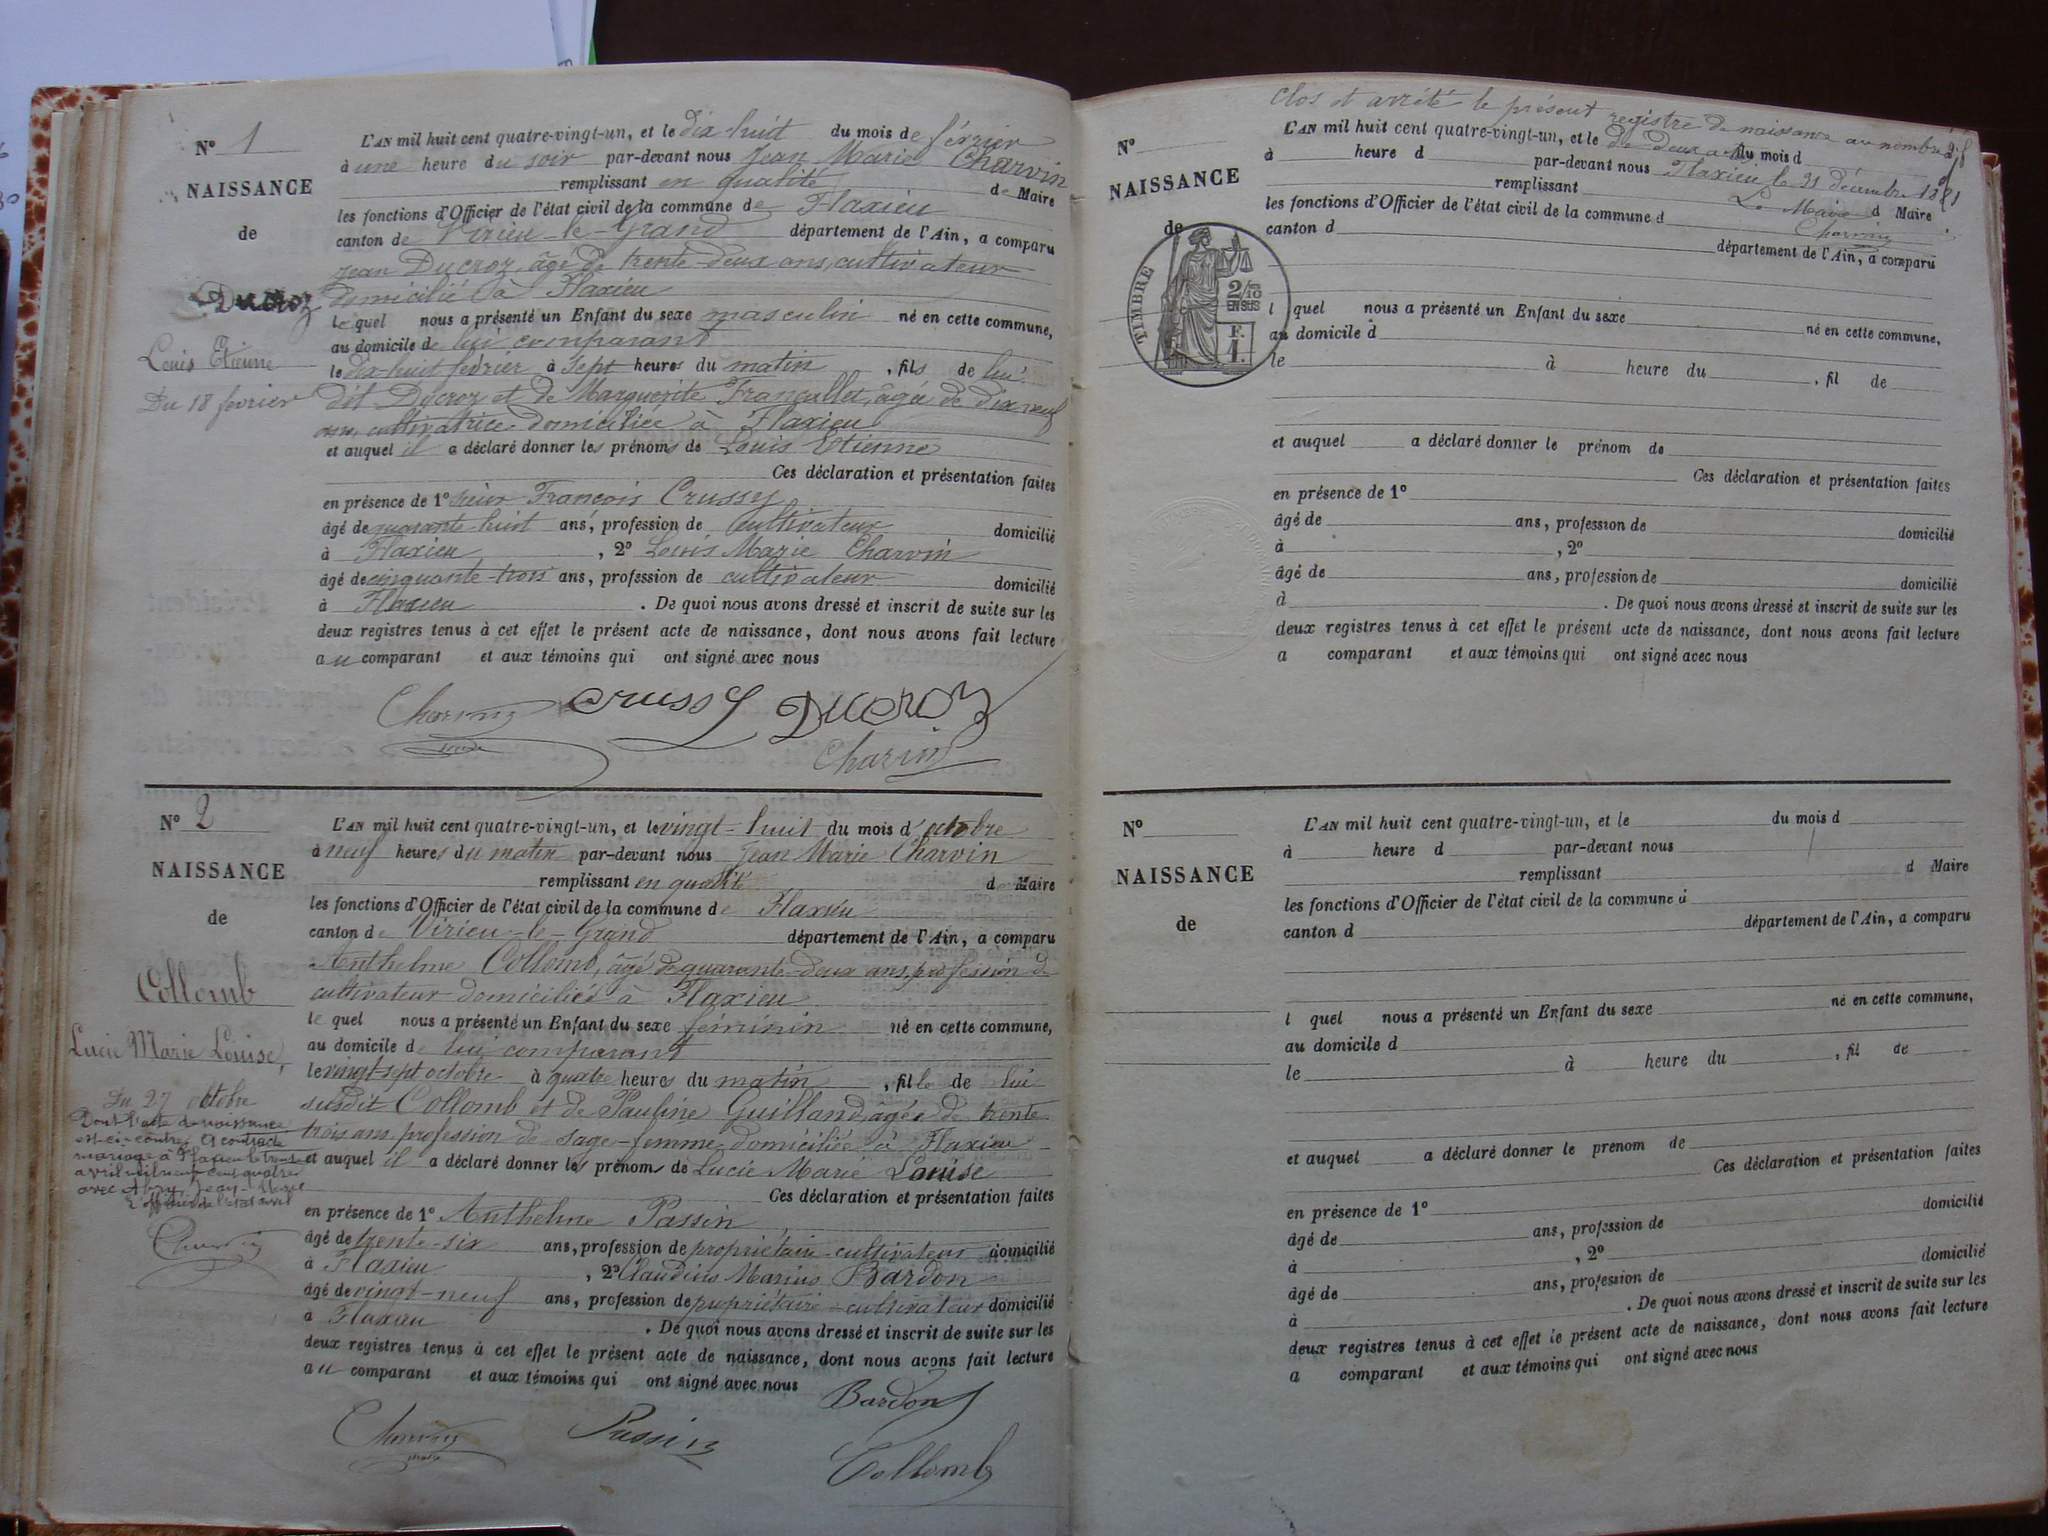 N° 1
NAISSANCE
de
Ducroz
Louis Etienne
Du 18 février
L'AN mil huit cent quatre-vingt-un, et le dix-huit du mois de février
à une heure du soir par-devant nous Jean Marie Charvin
remplissant en qualité de Maire
les fonctions d'Officier de l'état civil de la commune de Flaxieu
canton de Virieu-le-Grand département de l'Ain, a comparu
Jean Ducroz, âgé de trente-deux ans, cultivateur
domicilié à Flaxieu
lequel nous a présenté un Enfant du sexe masculin né en cette commune,
au domicile de lui comparant
le dix-huit février à sept heures du matin, fils de lui
dit Ducroz et de Marguerite Françallet, âgée de dix neuf
ans, cultivatrice domiciliée à Flaxieu
et auquel il a déclaré donner les prénoms de Louis Etienne
Ces déclaration et présentation faites
en présence de 1° sieur François Crussy
âgé de quarante-huit ans, profession de cultivateur domicilié
à Flaxieu, 2° Louis Marie Charvin
âgé de cinquante-trois ans, profession de cultivateur domicilié
à Flaxieu. De quoi nous avons dressé et inscrit de suite sur les
deux registres tenus à cet effet le présent acte de naissance, dont nous avons fait lecture
au comparant et aux témoins qui ont signé avec nous
Charvin Crussy Ducroz
Charvin
N° 2
NAISSANCE
de
Collomb
Lucie Marie Louise,
Du 27 octobre
Dont l'acte de naissance
est ci-contre, a contracté
mariage à Flaxieu le trente
avril mil neuf cent quatre
avec Jean-
L'officier de l'état civil
Charvin
L'AN mil huit cent quatre-vingt-un, et le vingt-huit du mois d'octobre
à neuf heures du matin par-devant nous Jean Marie Charvin
remplissant en qualité de Maire
les fonctions d'Officier de l'état civil de la commune de Flaxieu
canton de Virieu-le-Grand département de l'Ain, a comparu
Anthelme Collomb, âgé de quarante-deux ans, profession de
cultivateur domicilié à Flaxieu
lequel nous a présenté un Enfant du sexe féminin né en cette commune,
au domicile de lui comparant
le vingt-sept octobre à quatre heures du matin, fille de lui
susdit Collomb et de Pauline Guilland, âgée de trente
trois ans, profession de sage-femme domiciliée à Flaxieu
et auquel il a déclaré donner les prénoms de Lucie Marie Louise
Ces déclaration et présentation faites
en présence de 1° Anthelme Passin
âgé de trente-six ans, profession de propriétaire-cultivateur domicilié
à Flaxieu, 2° Claudius Marius Bardon
âgé de vingt-neuf ans, profession de propriétaire-cultivateur domicilié
à Flaxieu. De quoi nous avons dressé et inscrit de suite sur les
deux registres tenus à cet effet le présent acte de naissance, dont nous avons fait lecture
au comparant et aux témoins qui ont signé avec nous
Bardon
Charvin Passin
Collomb
Clos et arrêté le présent registre de naissance au nombre
de deux actes
Flaxieu le 31 décembre 1881
Le Maire
Charvin
N°
NAISSANCE
de
TIMBRE
2/10 EN SUS
F. 1.
L'AN mil huit cent quatre-vingt-un, et le du mois d
à heure d par-devant nous
remplissant d Maire
les fonctions d'Officier de l'état civil de la commune d
canton d département de l'Ain, a comparu
l quel nous a présenté un Enfant du sexe né en cette commune,
au domicile d
le à heure du , fil de
et auquel a déclaré donner le prénom de
Ces déclaration et présentation faites
en présence de 1°
âgé de ans, profession de domicilié
à , 2°
âgé de ans, profession de domicilié
à . De quoi nous avons dressé et inscrit de suite sur les
deux registres tenus à cet effet le présent acte de naissance, dont nous avons fait lecture
a comparant et aux témoins qui ont signé avec nous
N°
NAISSANCE
de
L'AN mil huit cent quatre-vingt-un, et le du mois d
à heure d par-devant nous
remplissant d Maire
les fonctions d'Officier de l'état civil de la commune d
canton d département de l'Ain, a comparu
l quel nous a présenté un Enfant du sexe né en cette commune,
au domicile d
le à heure du , fil de
et auquel a déclaré donner le prenom de
Ces déclaration et présentation faites
en présence de 1°
âgé de ans, profession de domicilié
à , 2°
âgé de ans, profession de domicilié
à . De quoi nous avons dressé et inscrit de suite sur les
deux registres tenus à cet effet le présent acte de naissance, dont nous avons fait lecture
a comparant et aux témoins qui ont signé avec nous